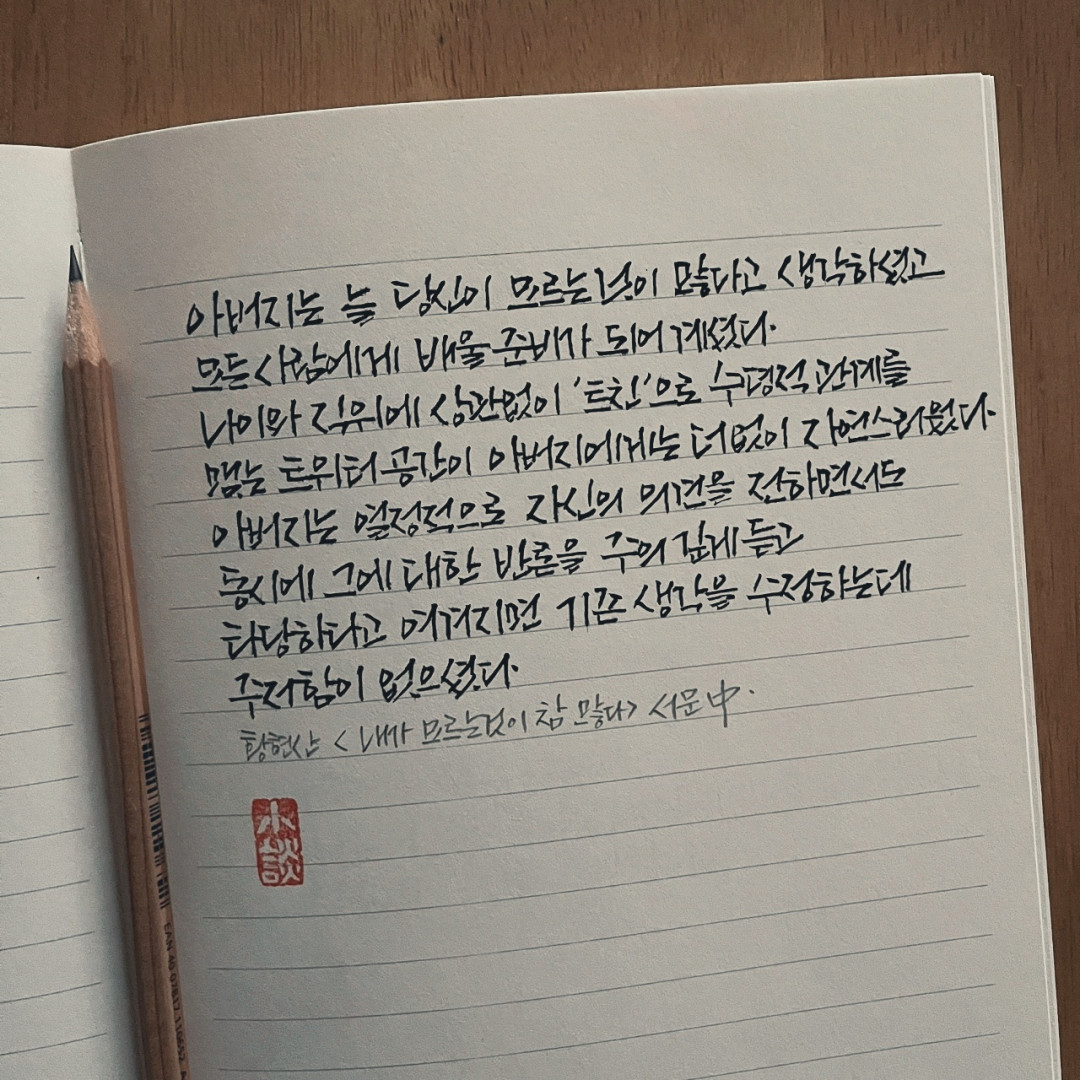 아버지는 늘 당신이 모르는것이 많다고 생각하셨고
모든 사람에게 배울 준비가 되어 계셨다.
나이와 직위에 상관없이 '트친'으로 수평적 관계를
맺는 트위터 공간이 아버지에게는 더없이 자연스러웠다.
아버지는 열정적으로 자신의 의견을 전하면서도
동시에 그에 대한 반론을 주의 깊게 듣고
타당하다고 여겨지면 기존 생각을 수정하는데
주저함이 없으셨다.
황현산 < 내가 모르는것이 참 많다> 서문 中.
小談